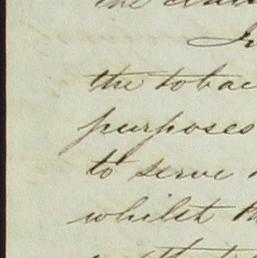 the
the tobac
purposes
to serve
whilst th